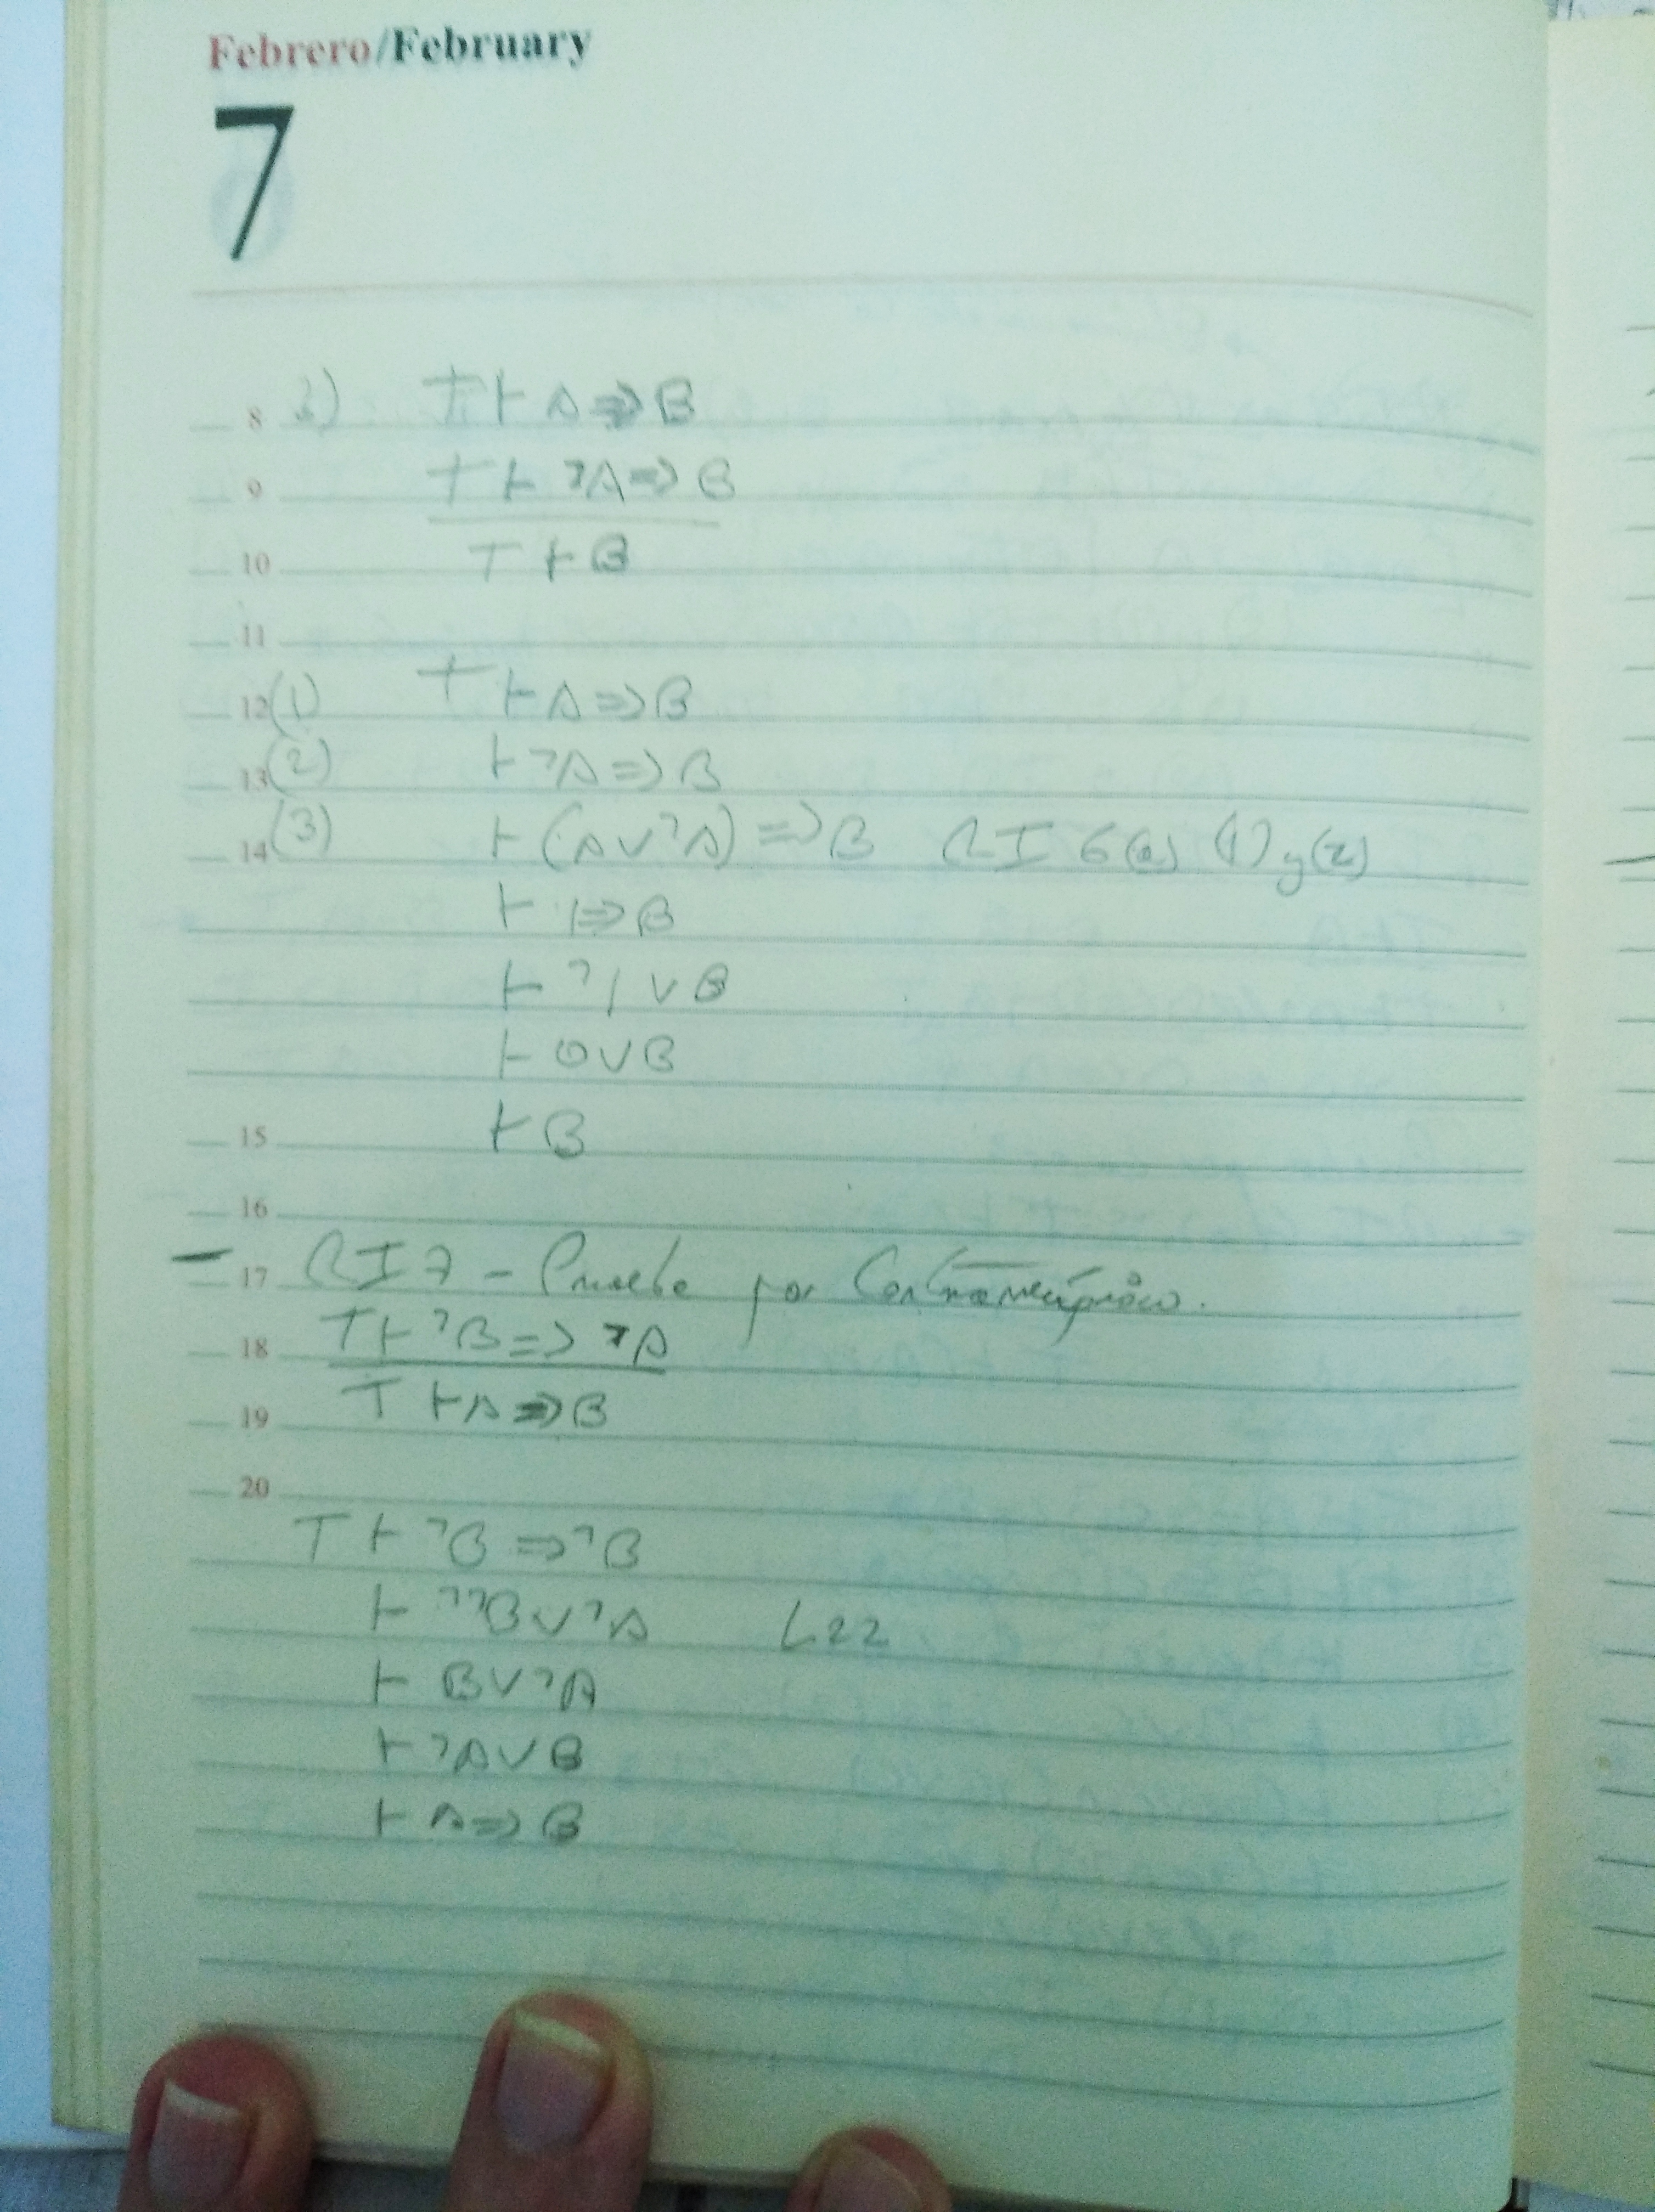 Febrero/February
7
8 b) T ⊢ A ⇒ B
9 T ⊢ ¬A ⇒ B
10 T ⊢ B
11
12 (1) T ⊢ A ⇒ B
13 (2) ⊢ ¬A ⇒ B
14 (3) ⊢ (A ∨ ¬A) ⇒ B RI 6(a) (1) y (2)
⊢ 1 ⇒ B
⊢ ¬1 ∨ B
⊢ 0 ∨ B
15 ⊢ B
16
17 – RI7 – Prueba por Contrarrecíproco.
18 T ⊢ ¬B ⇒ ¬A
19 T ⊢ A ⇒ B
20
T ⊢ ¬B ⇒ ¬B
⊢ ¬¬B ∨ ¬A L22
⊢ B ∨ ¬A
⊢ ¬A ∨ B
⊢ A ⇒ B